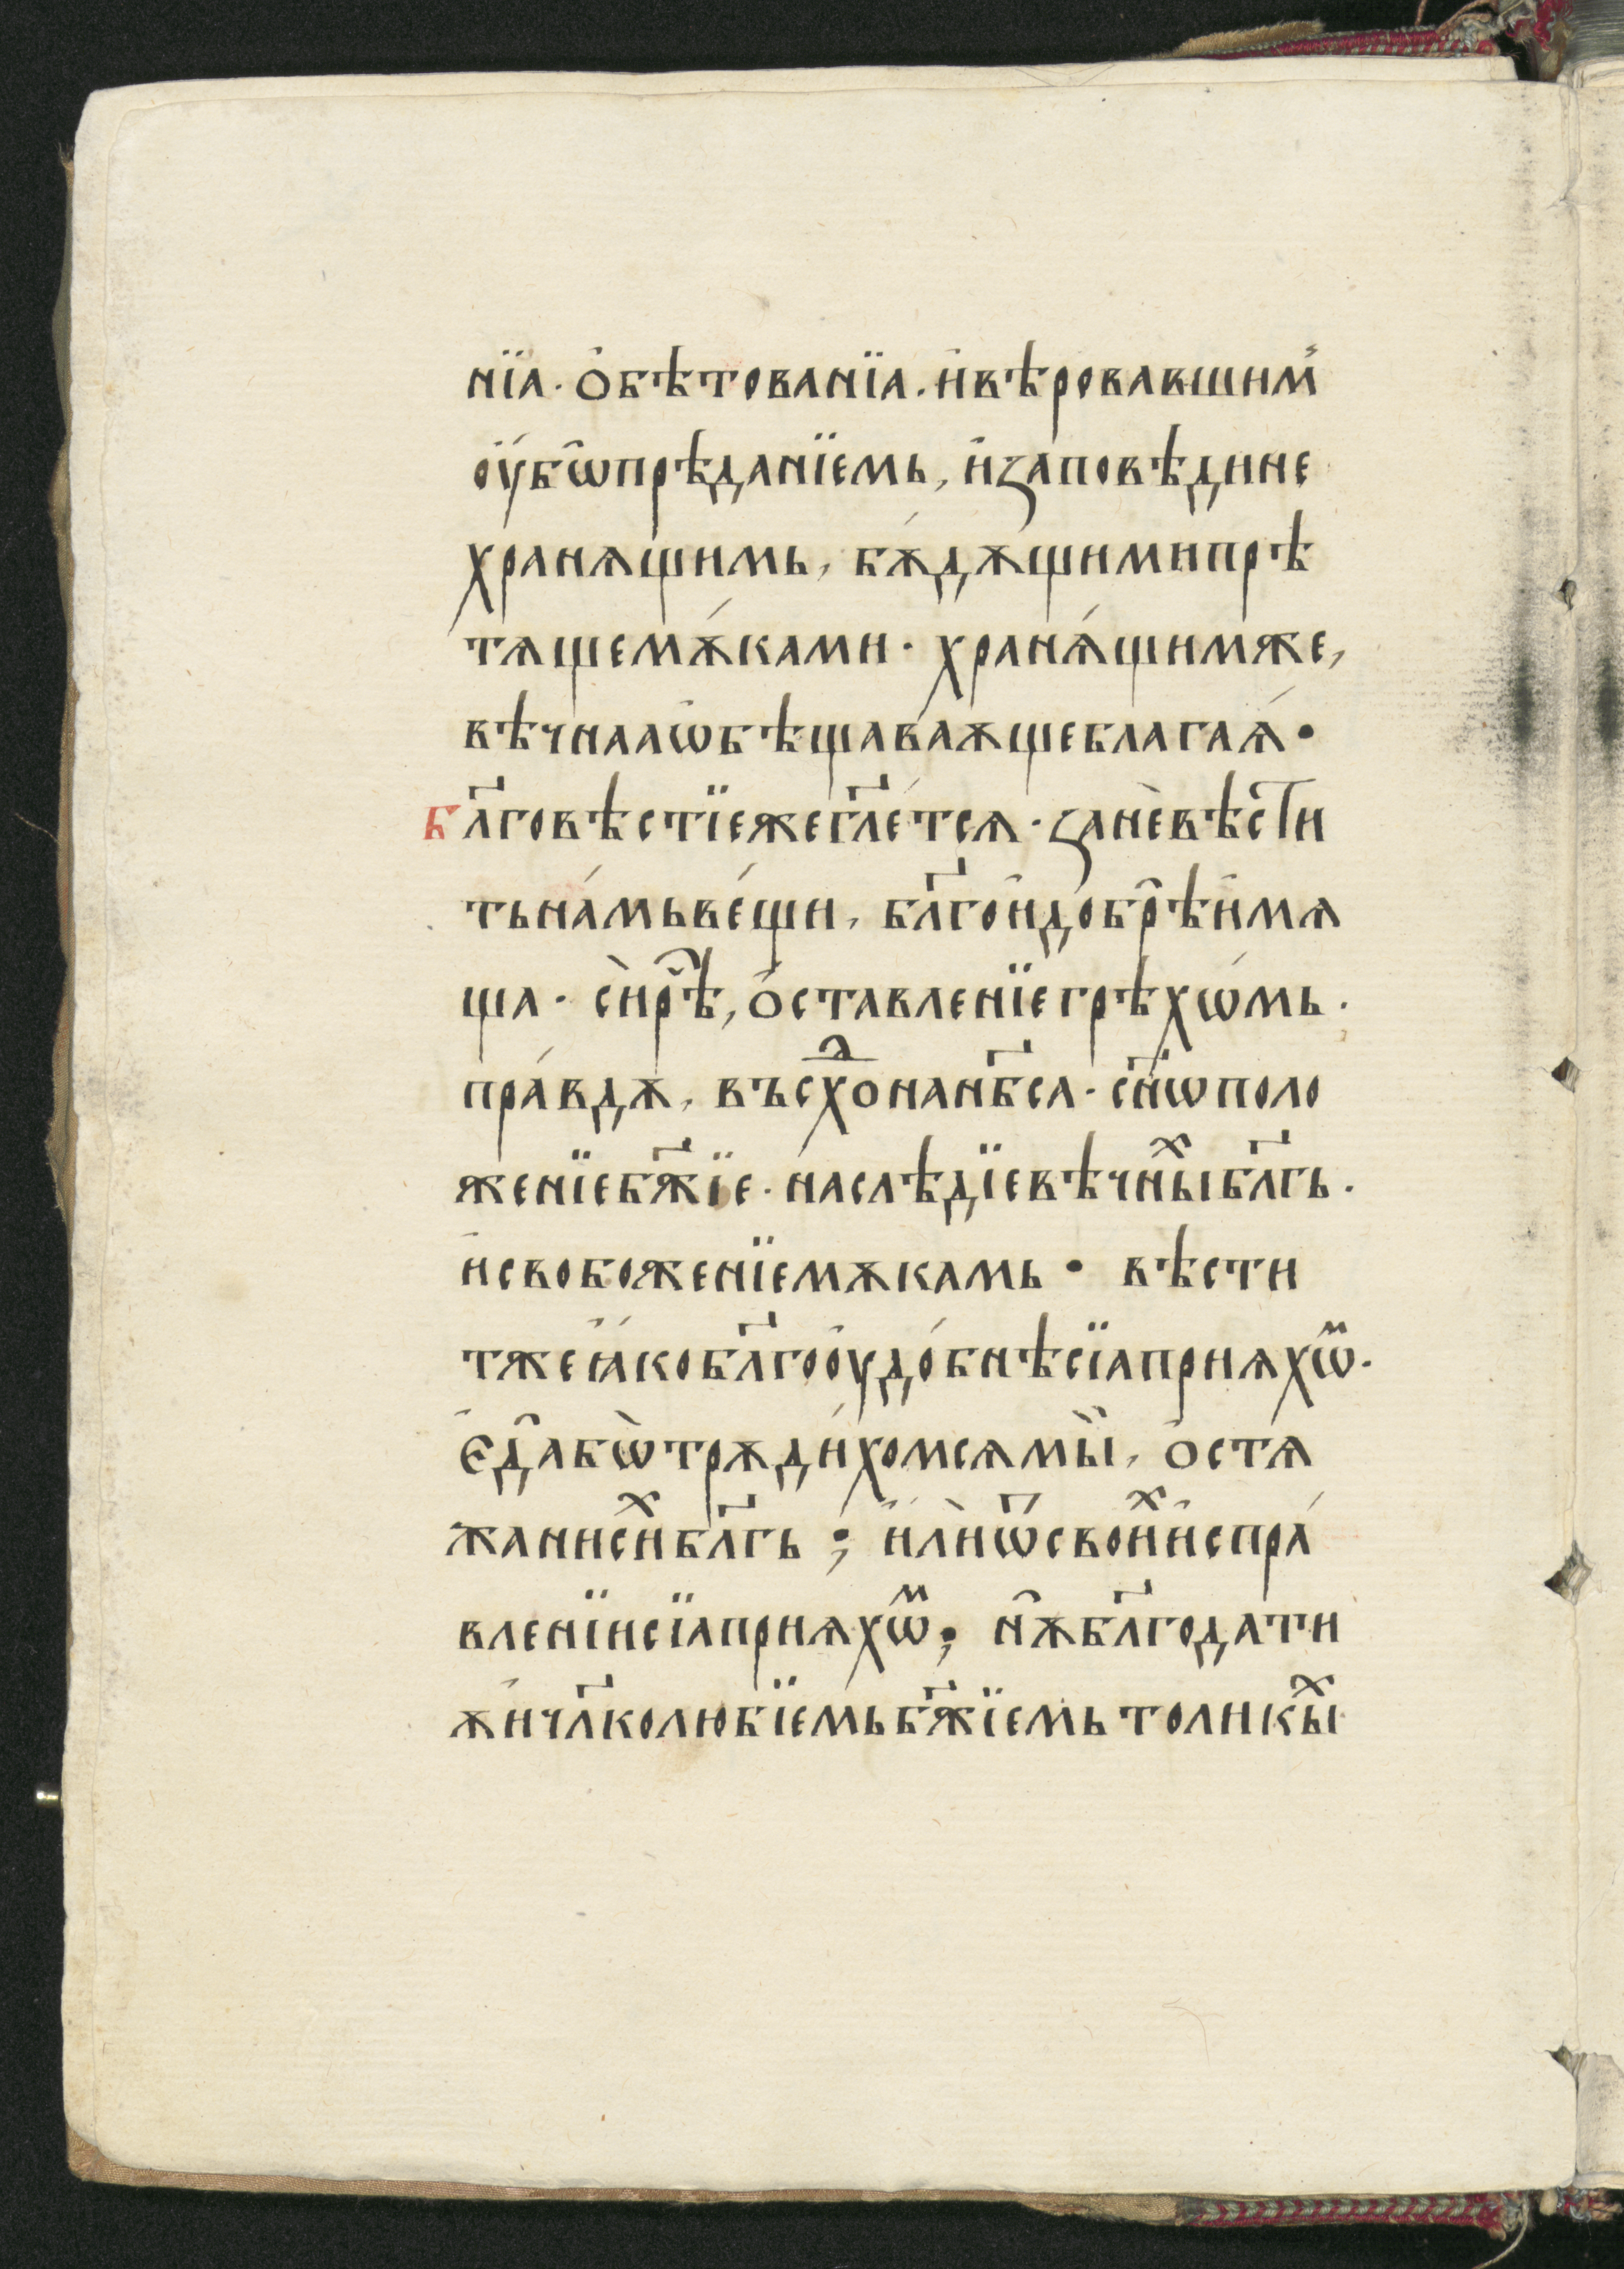 нїа · ѻ҆бѣтованїа · и҆вѣровавшим̾
оу҆́бѡ̑прѣданїемь, и҆заповѣдине
хранѧщимь, бѫ́дѫщимипрѣ
тѧщемѫ́ками · хранѧ́щимже,
вѣчнааѡ҆бѣщава́ѫщеблага́ѧ ·
Бл҃говѣстїежегл҃е́тсѧ · занѐвѣс̑ти
тьна́мьве́щи, бл҃гои҆до́бр̑ѣи҆мѧ
ща · сѝр̑ѣ, ѻ҆ставленїегрѣхѡ́мь ·
пра́вдѫ, въсхⷪ҇онанб҃са · сн҃ѡполо
женїебж҃їе · наслѣдїевѣчныⷯбл҃гь ·
и҆свобоженїемѫкамь · вѣсти
тжеꙗ҆́кобл҃гооу҆до́бнѣсїаприѧхѡⷨ ·
Є҆д̑абѡ̀трѫди́хомсѧмы̏, ѻ҆стѧ́
жанисиⷯбл҃гь ; и҆лѝѿсвоиⷯи҆спра́
вленїисїаприѧхѡⷨ; нѫ̑бл҃годати
ѫ҆ичл҃колюбїемьбж҃їемьтоликыⷯ